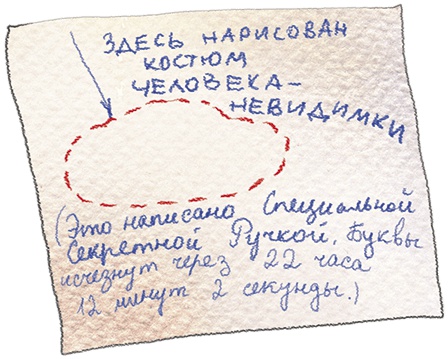 ЗДЕСЬ НАРИСОВАН
КОСТЮМ
ЧЕЛОВЕКА-
НЕВИДИМКИ
(Это написано Специальной
Секретной Ручкой. Буквы
исчезнут через 22 часа
12 минут 2 секунды.)